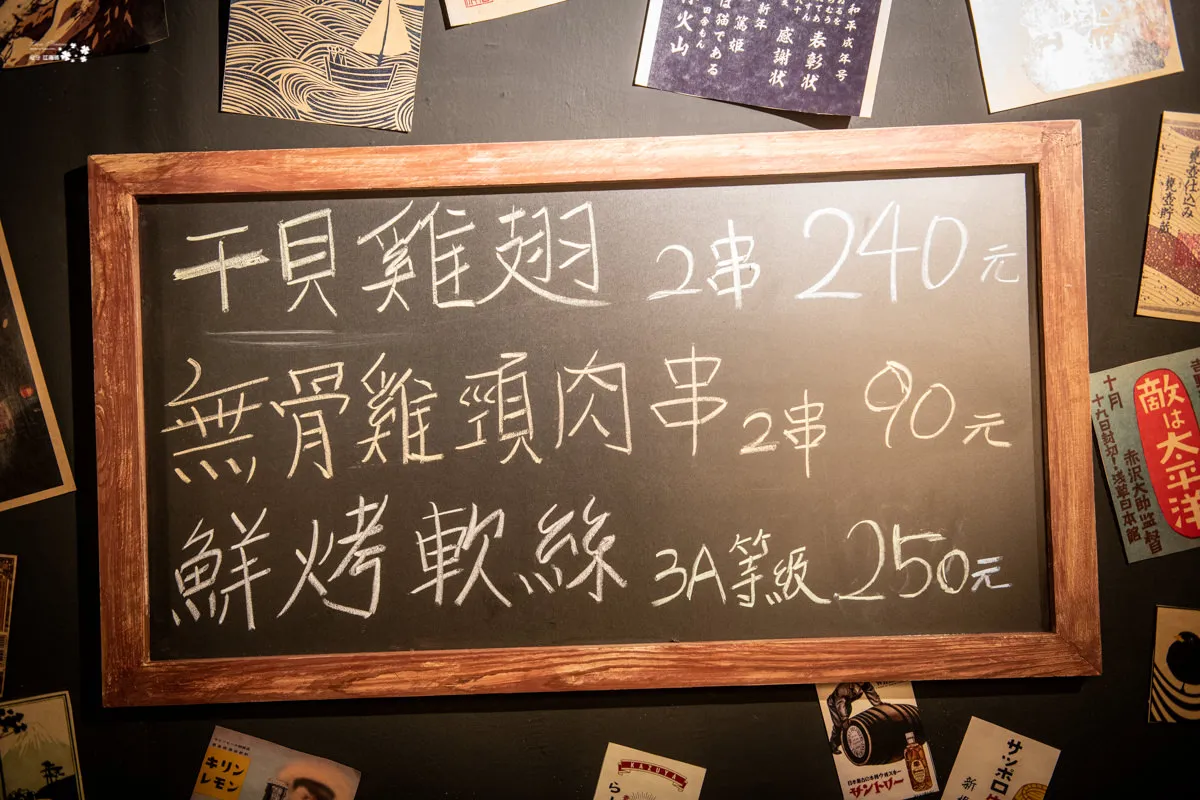 和平成年号
表彰状
感謝状
篤姫
新年
は猫である
火山
干貝雞翅 2串 240元
無骨雞頸肉串 2串 90元
鮮烤軟絲 3A等級 250元
甕壺仕込み
甕壺貯蔵
敵は太平洋
十月
十九日封切!浅草日本館
赤沢大助監督
キリン
レモン
KAZUYA
サントリー
サッポロ
新